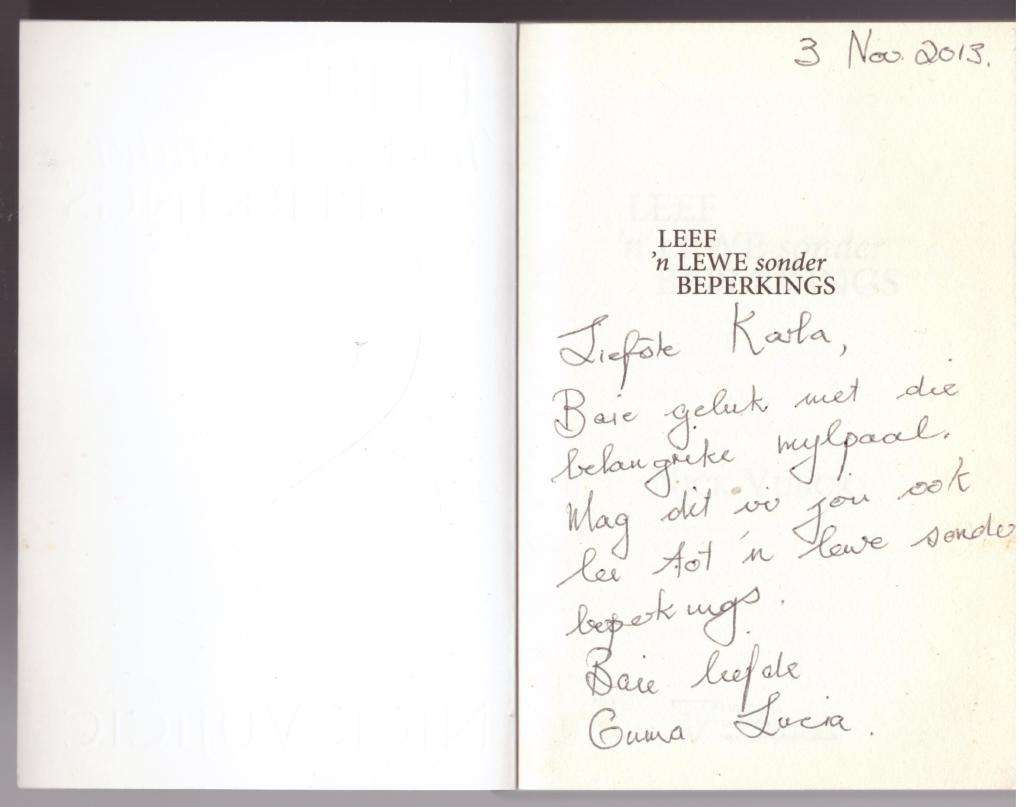 3 Nov. 2013.
LEEF
'n LEWE sonder
BEPERKINGS
Liefste Karla,
Baie geluk met die
belangrike mylpaal.
Mag dit vir jou ook
lei tot 'n lewe sonder
beperkings.
Baie liefde
Ouma Lucia.